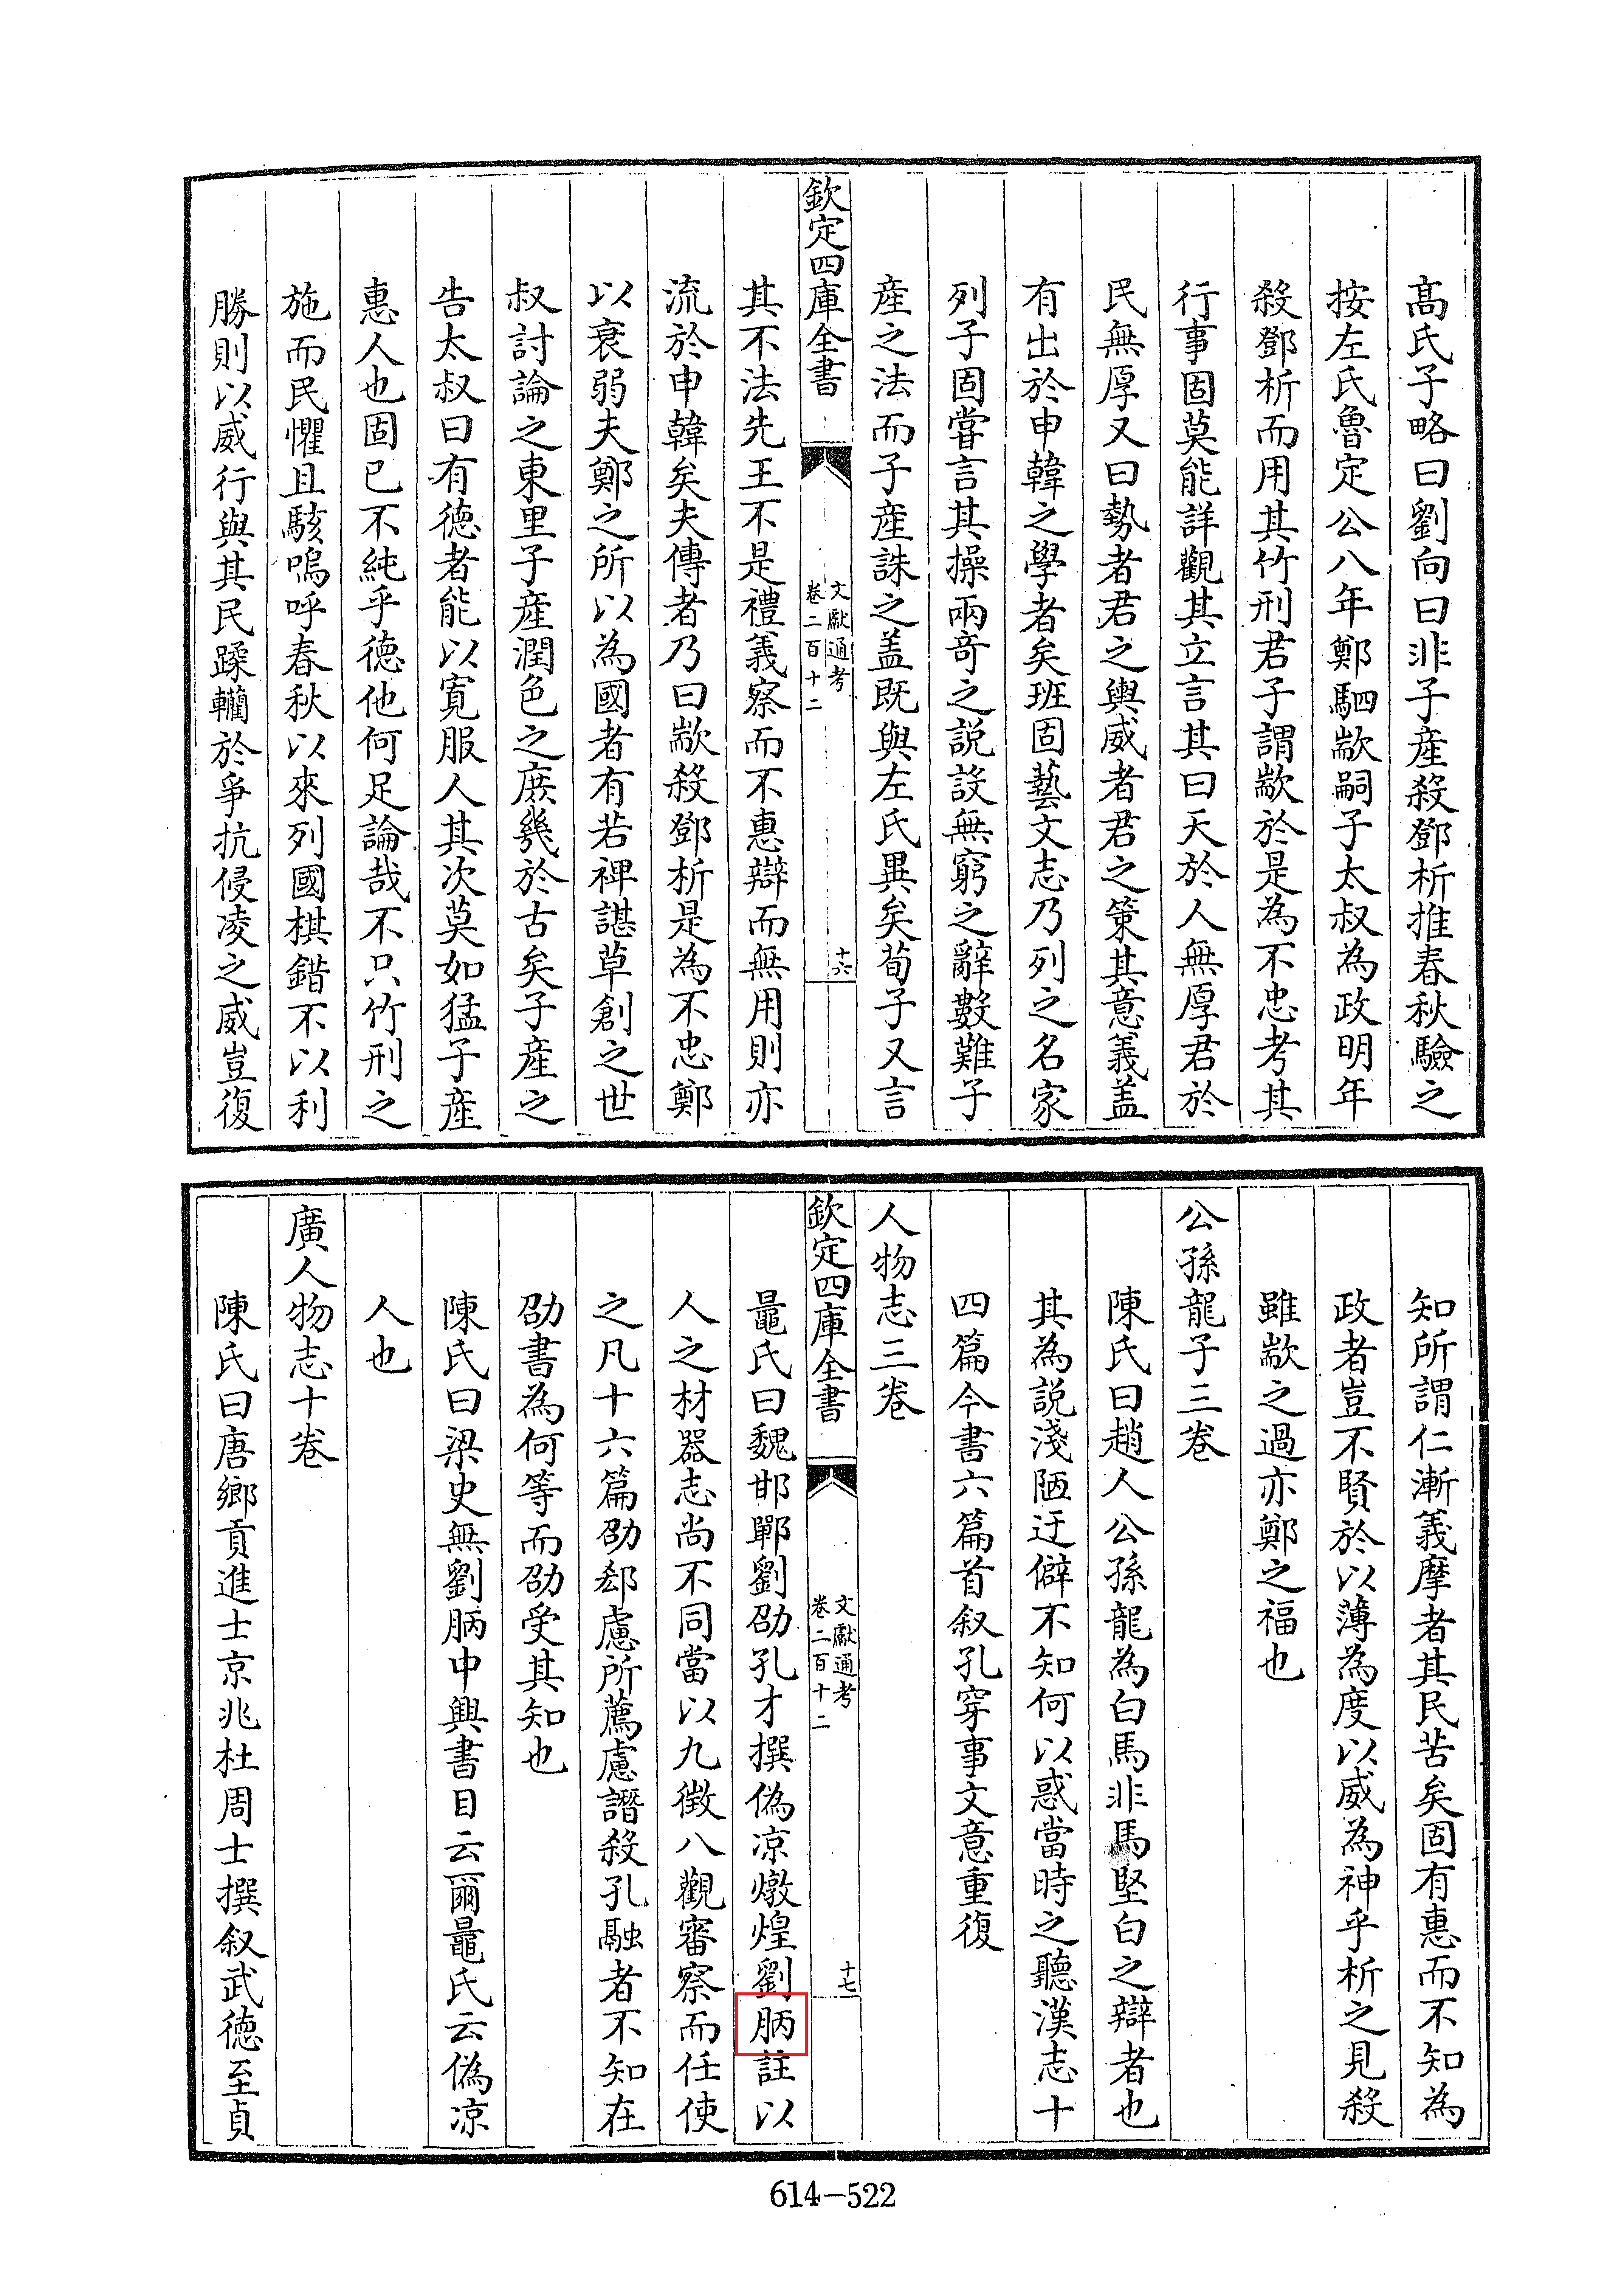 高氏子略曰劉向曰非子產殺鄧析推春秋驗之
按左氏魯定公八年鄭駟歂嗣子太叔為政明年
殺鄧析而用其竹刑君子謂歂於是為不忠考其
行事固莫能詳觀其立言其曰天於人無厚君於
民無厚又曰勢者君之輿威者君之策其意義盖
有出於申韓之學者矣班固藝文志乃列之名家
列子固甞言其操兩奇之説設無窮之辭數難子
產之法而子產誅之盖既與左氏異矣荀子又言
欽定四庫全書
文獻通考
卷二百十二
十六
其不法先王不是禮義察而不惠辯而無用則亦
流於申韓矣夫傳者乃曰歂殺鄧析是為不忠鄭
以衰弱夫鄭之所以為國者有若禆諶草創之世
叔討論之東里子產潤色之庶幾於古矣子產之
告太叔曰有德者能以寛服人其次莫如猛子產
惠人也固已不純乎德他何足論哉不只竹刑之
施而民懼且駭嗚呼春秋以來列國棋錯不以利
勝則以威行與其民蹂轥於爭抗侵凌之威豈復
知所謂仁漸義摩者其民苦矣固有惠而不知為
政者豈不賢於以薄為度以威為神乎析之見殺
雖歂之過亦鄭之福也
公孫龍子三卷
陳氏曰趙人公孫龍為白馬非馬堅白之辯者也
其為説淺陋迂僻不知何以惑當時之聽漢志十
四篇今書六篇首叙孔穿事文意重復
人物志三卷
欽定四庫全書
文獻通考
卷二百十二
十七
鼂氏曰魏邯鄲劉劭孔才撰偽凉燉煌劉昞註以
人之材器志尚不同當以九徵八觀審察而任使
之凡十六篇劭郄慮所薦慮譖殺孔融者不知在
劭書為何等而劭受其知也
陳氏曰梁史無劉昞中興書目云爾鼂氏云偽凉
人也
廣人物志十卷
陳氏曰唐鄉貢進士京兆杜周士撰叙武德至貞
614-522